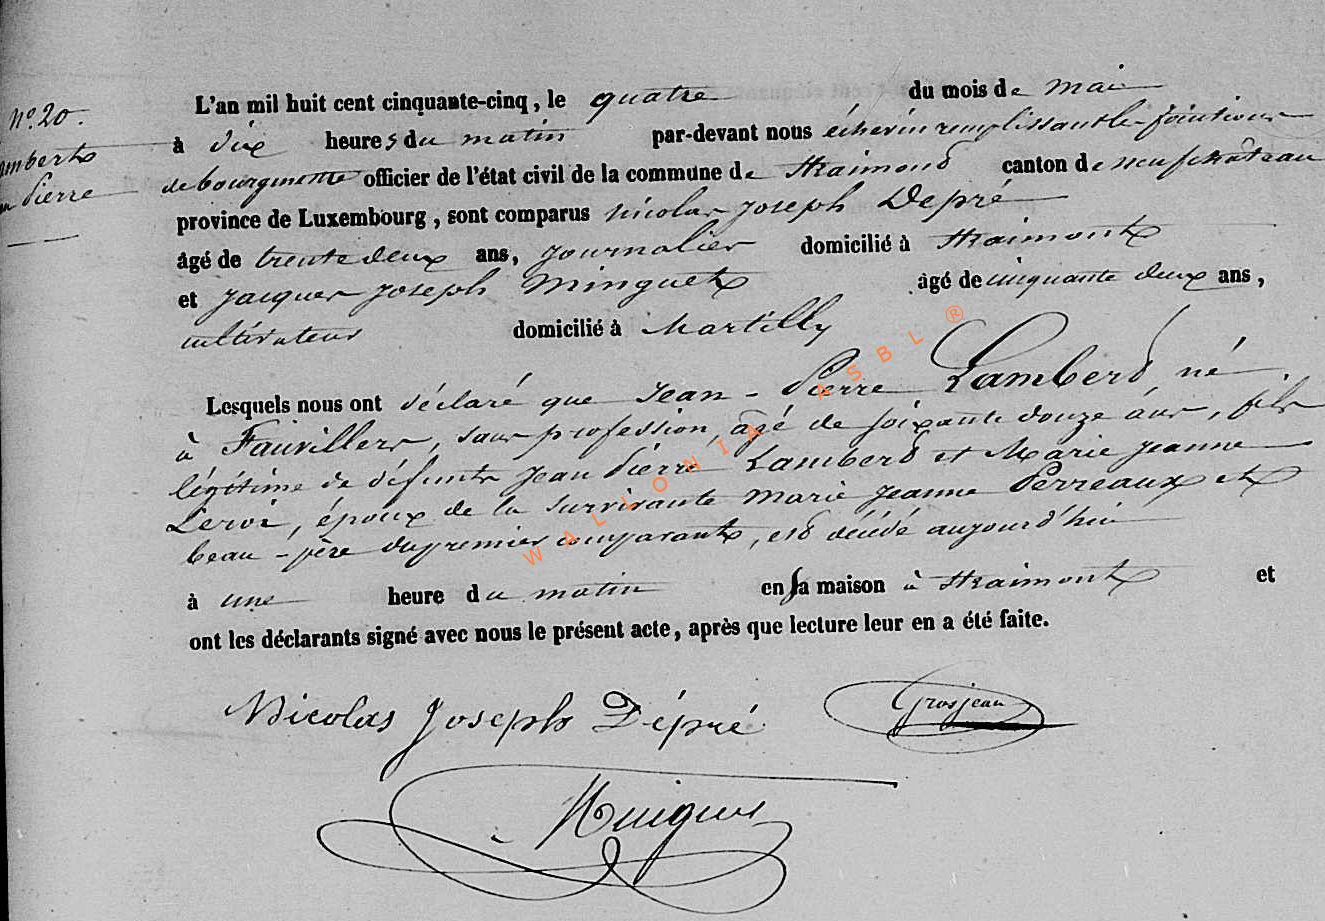 N.º 20.
L'an mil huit cent cinquante-cinq, le quatre du mois de mai
à dix heures du matin par-devant nous échevin remplissant les fonctions
de bourgmestre officier de l'état civil de la commune de Straimont canton de neufchâteau
province de Luxembourg, sont comparus Nicolas Joseph Depré
âgé de trente deux ans, journalier domicilié à Straimont
et Jacques Joseph Minguet âgé de cinquante deux ans,
cultivateur domicilié à Martilly
Lesquels nous ont déclaré que Jean-Pierre Lambert, né
à Fauvillers, sans profession, âgé de soixante douze ans, fils
légitime de défunts Jean Pierre Lambert et Marie Jeanne
Leroi, époux de la survivante Marie Jeanne Perreaux et
beau-père du premier comparant, est décédé aujourd'hui
à une heure du matin en sa maison à Straimont et
ont les déclarants signé avec nous le présent acte, après que lecture leur en a été faite.
Nicolas Joseph Dépré Grosjean
WALLONIA ASBL ®